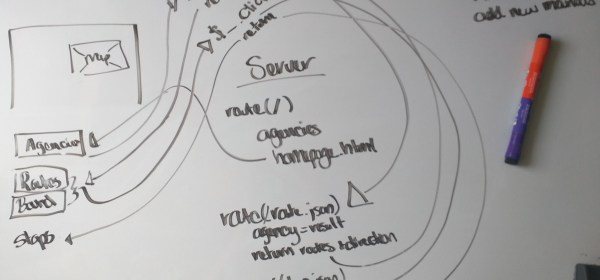 add new markers
$_.click
return
map
Server
route(/)
agencies
homepage.html
Agencies
Routes
Bound
Stops
route(/route.json)
agency=result
return routes + direction